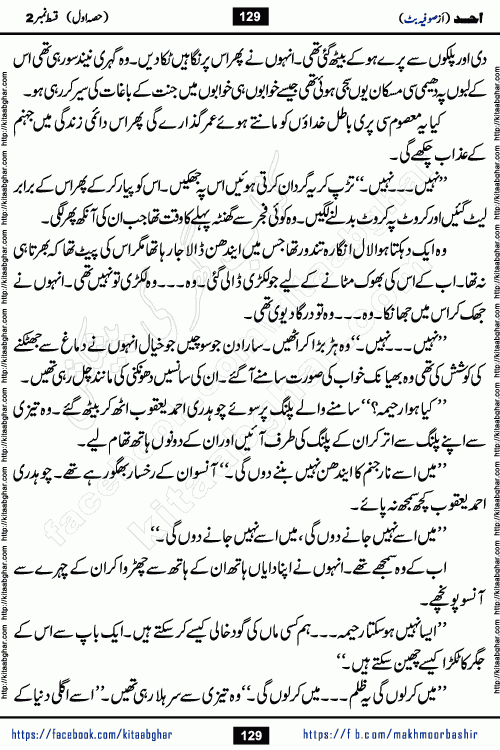 اَحد (از صوفیہ بٹ) 129 (حصہ اول) قسط نمبر 2
دی اور پلکوں سے پرے ہو کے بیٹھ گئی تھی۔ انہوں نے پھر اس پر نگاہیں ٹکا دیں۔ وہ گہری نیند سو رہی تھی اس
کے لبوں پہ دھیمی سی مسکان یوں سجی ہوئی تھی جیسے خوابوں ہی خوابوں میں جنت کے باغات کی سیر کر رہی ہو۔
کیا یہ معصوم سی پری باطل خداؤں کو مانتے ہوئے عمر گذارے گی پھر اس دائمی زندگی میں جہنم
کے عذاب چکھے گی۔
’’نہیں۔۔۔نہیں۔‘‘ تڑپ کر یہ گردان کرتی ہوئیں اس پہ جھکیں۔ اس کو پیار کر کے پھر اس کے برابر
لیٹ گئیں اور کروٹ پہ کروٹ بدلنے لگیں۔ وہ کوئی فجر سے گھنٹہ پہلے کا وقت تھا جب ان کی آنکھ پھر لگی۔
وہ ایک دہکتا ہوا لال انگارہ تندور تھا جس میں ایندھن ڈالا جا رہا تھا مگر اس کی پیٹ تھا کہ بھرتا ہی
نہ تھا۔ اب کے اس کی بھوک مٹانے کے لیے جو لکڑی ڈالی گئی۔ وہ۔۔۔وہ لکڑی تو نہیں تھی۔ انہوں نے
جھک کر اس میں جھانکا۔ وہ۔۔۔وہ تو درگا دیوی تھی۔
’’نہیں۔۔۔نہیں۔‘‘ وہ ہڑبڑا کر اٹھیں۔ سارا دن جو سوچیں جو خیال انہوں نے دماغ سے جھٹکنے
کی کوشش کی تھی وہ بھیانک خواب کی صورت سامنے آ گئے۔ ان کی سانسیں دھونکنی کی مانند چل رہی تھیں۔
’’کیا ہوا رحیمہ؟‘‘ سامنے والے پلنگ پر سوئے چوہدری احمد یعقوب اٹھ کر بیٹھ گئے۔ وہ تیزی
سے اپنے پلنگ سے اتر کر ان کے پلنگ کی طرف آئیں اور ان کے دونوں ہاتھ تھام لیے۔
’’میں اسے نارِ جہنم کا ایندھن نہیں بننے دوں گی۔‘‘ آنسو ان کے رخسار بھگو رہے تھے۔ چوہدری
احمد یعقوب کچھ سمجھ نہ پائے۔
’’میں اسے نہیں جانے دوں گی، میں اسے نہیں جانے دوں گی۔‘‘
اب کے وہ سمجھے تھے۔ انہوں نے اپنا دایاں ہاتھ ان کے ہاتھ سے چھڑوا کر ان کے چہرے سے
آنسو پونچھے۔
’’ایسا نہیں ہو سکتا رحیمہ۔۔۔ہم کسی ماں کی گود خالی کیسے کر سکتے ہیں۔ ایک باپ سے اس کے
جگر کا ٹکڑا کیسے چھین سکتے ہیں۔‘‘
’’میں کر لوں گی یہ ظلم۔۔۔میں کر لوں گی۔‘‘ وہ تیزی سے سر ہلا رہی تھیں۔ ’’اسے اگلی دنیا کے
https://facebook.com/kitaabghar 129 https://fb.com/makhmoorbashir
http://kitaabghar.com
facebook.com/kitaabghar
kitaabghar.com